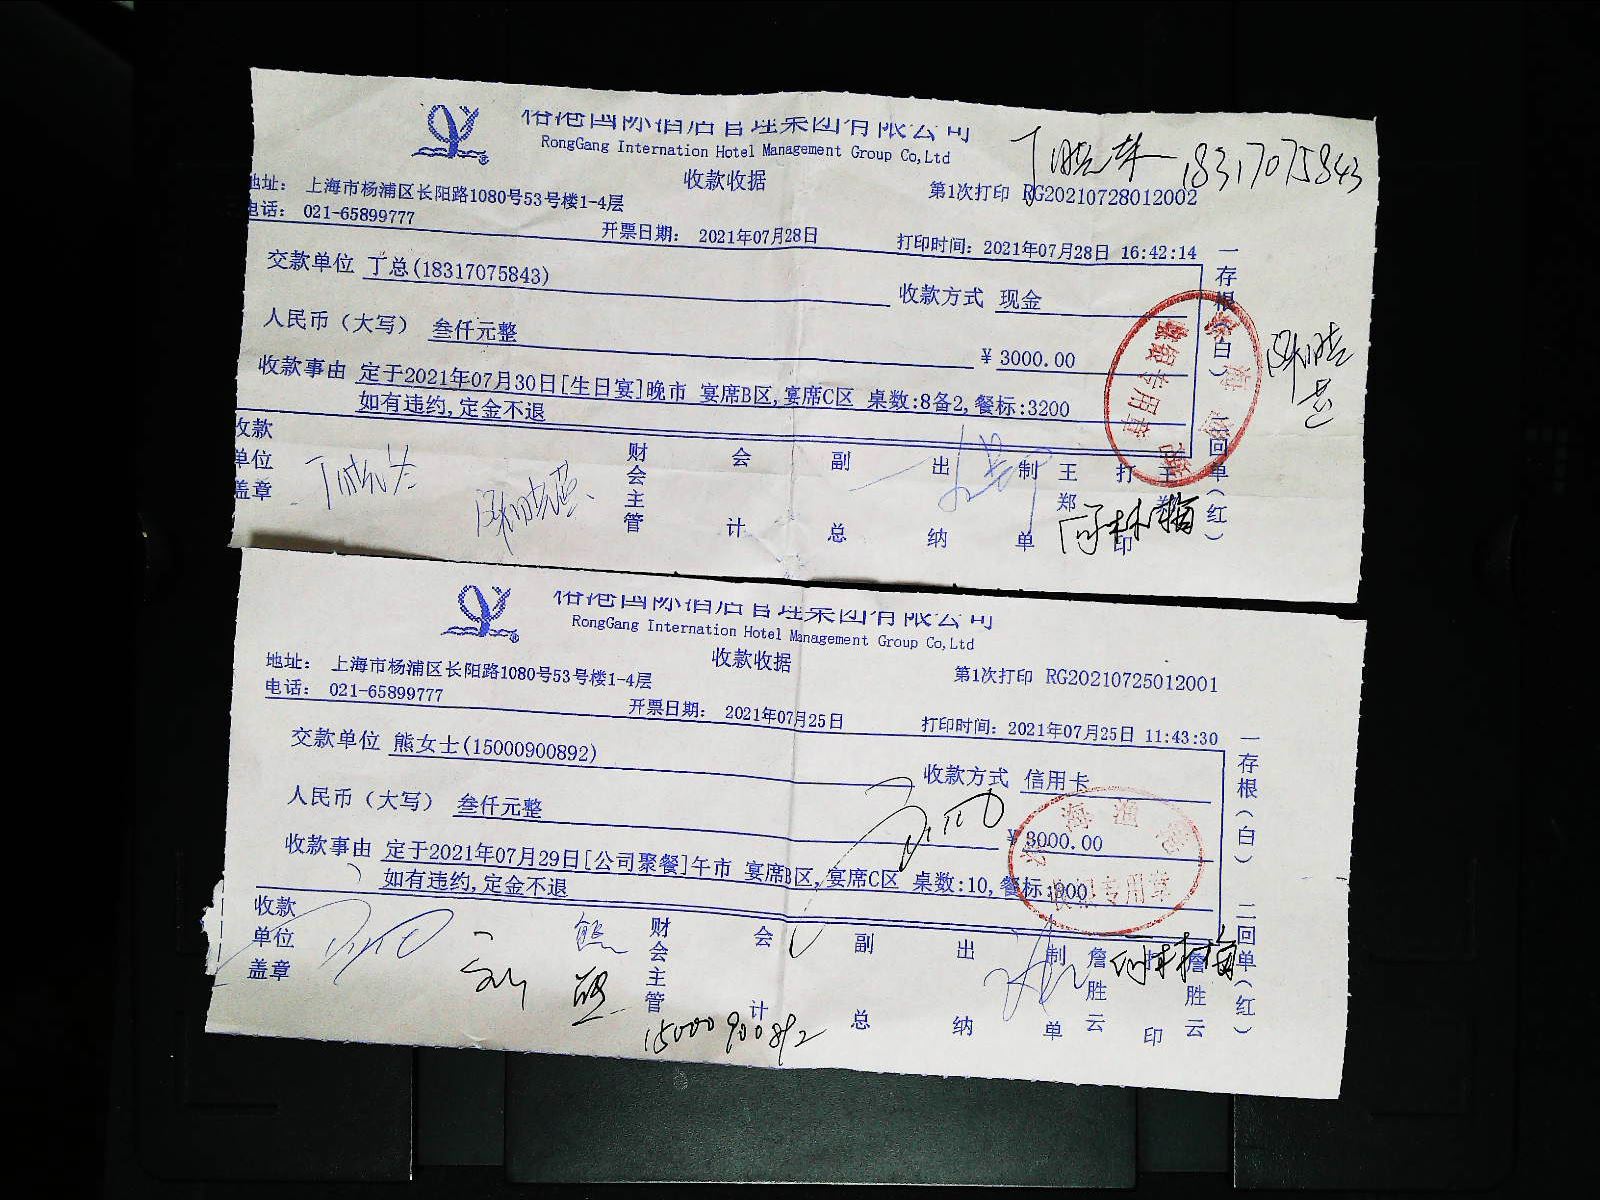 裕港国际酒店管理集团有限公司
RongGang Internation Hotel Management Group Co,Ltd
收款收据
丁晓 18317075843
第1次打印 RG20210728012002
地址： 上海市杨浦区长阳路1080号53号楼1-4层
电话： 021-65899777
开票日期： 2021年07月28日
打印时间：2021年07月28日 16:42:14
交款单位 丁总(18317075843)
收款方式 现金
人民币（大写） 叁仟元整
¥ 3000.00
收款事由 定于2021年07月30日[生日宴]晚市 宴席B区,宴席C区 桌数:8备2,餐标:3200
如有违约,定金不退
收款单位盖章
财会主管
会计
副总
出纳
制单
王郑
打印
一存根(白)
二回单(红)
专用章
裕港国际酒店管理集团有限公司
RongGang Internation Hotel Management Group Co,Ltd
收款收据
第1次打印 RG20210725012001
地址： 上海市杨浦区长阳路1080号53号楼1-4层
电话： 021-65899777
开票日期： 2021年07月25日
打印时间：2021年07月25日 11:43:30
交款单位 熊女士(15000900892)
收款方式 信用卡
人民币（大写） 叁仟元整
¥ 3000.00
收款事由 定于2021年07月29日[公司聚餐]午市 宴席B区,宴席C区 桌数:10,餐标:900
如有违约,定金不退
收款单位盖章
熊
15000900892
财会主管
会计
副总
出纳
制单
詹胜云
打印
詹胜云
一存根(白)
二回单(红)
专用章